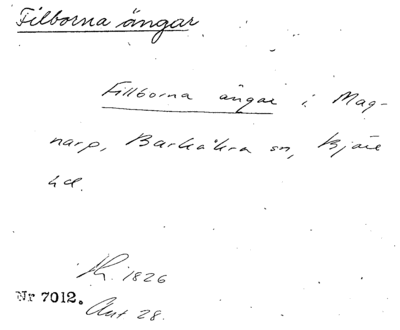 Filborna ängar
Fillborna ängar i Mag-
narp, Barkåkra sn, Bjäre
hd.
1826
Nr 7012. Ant 28.